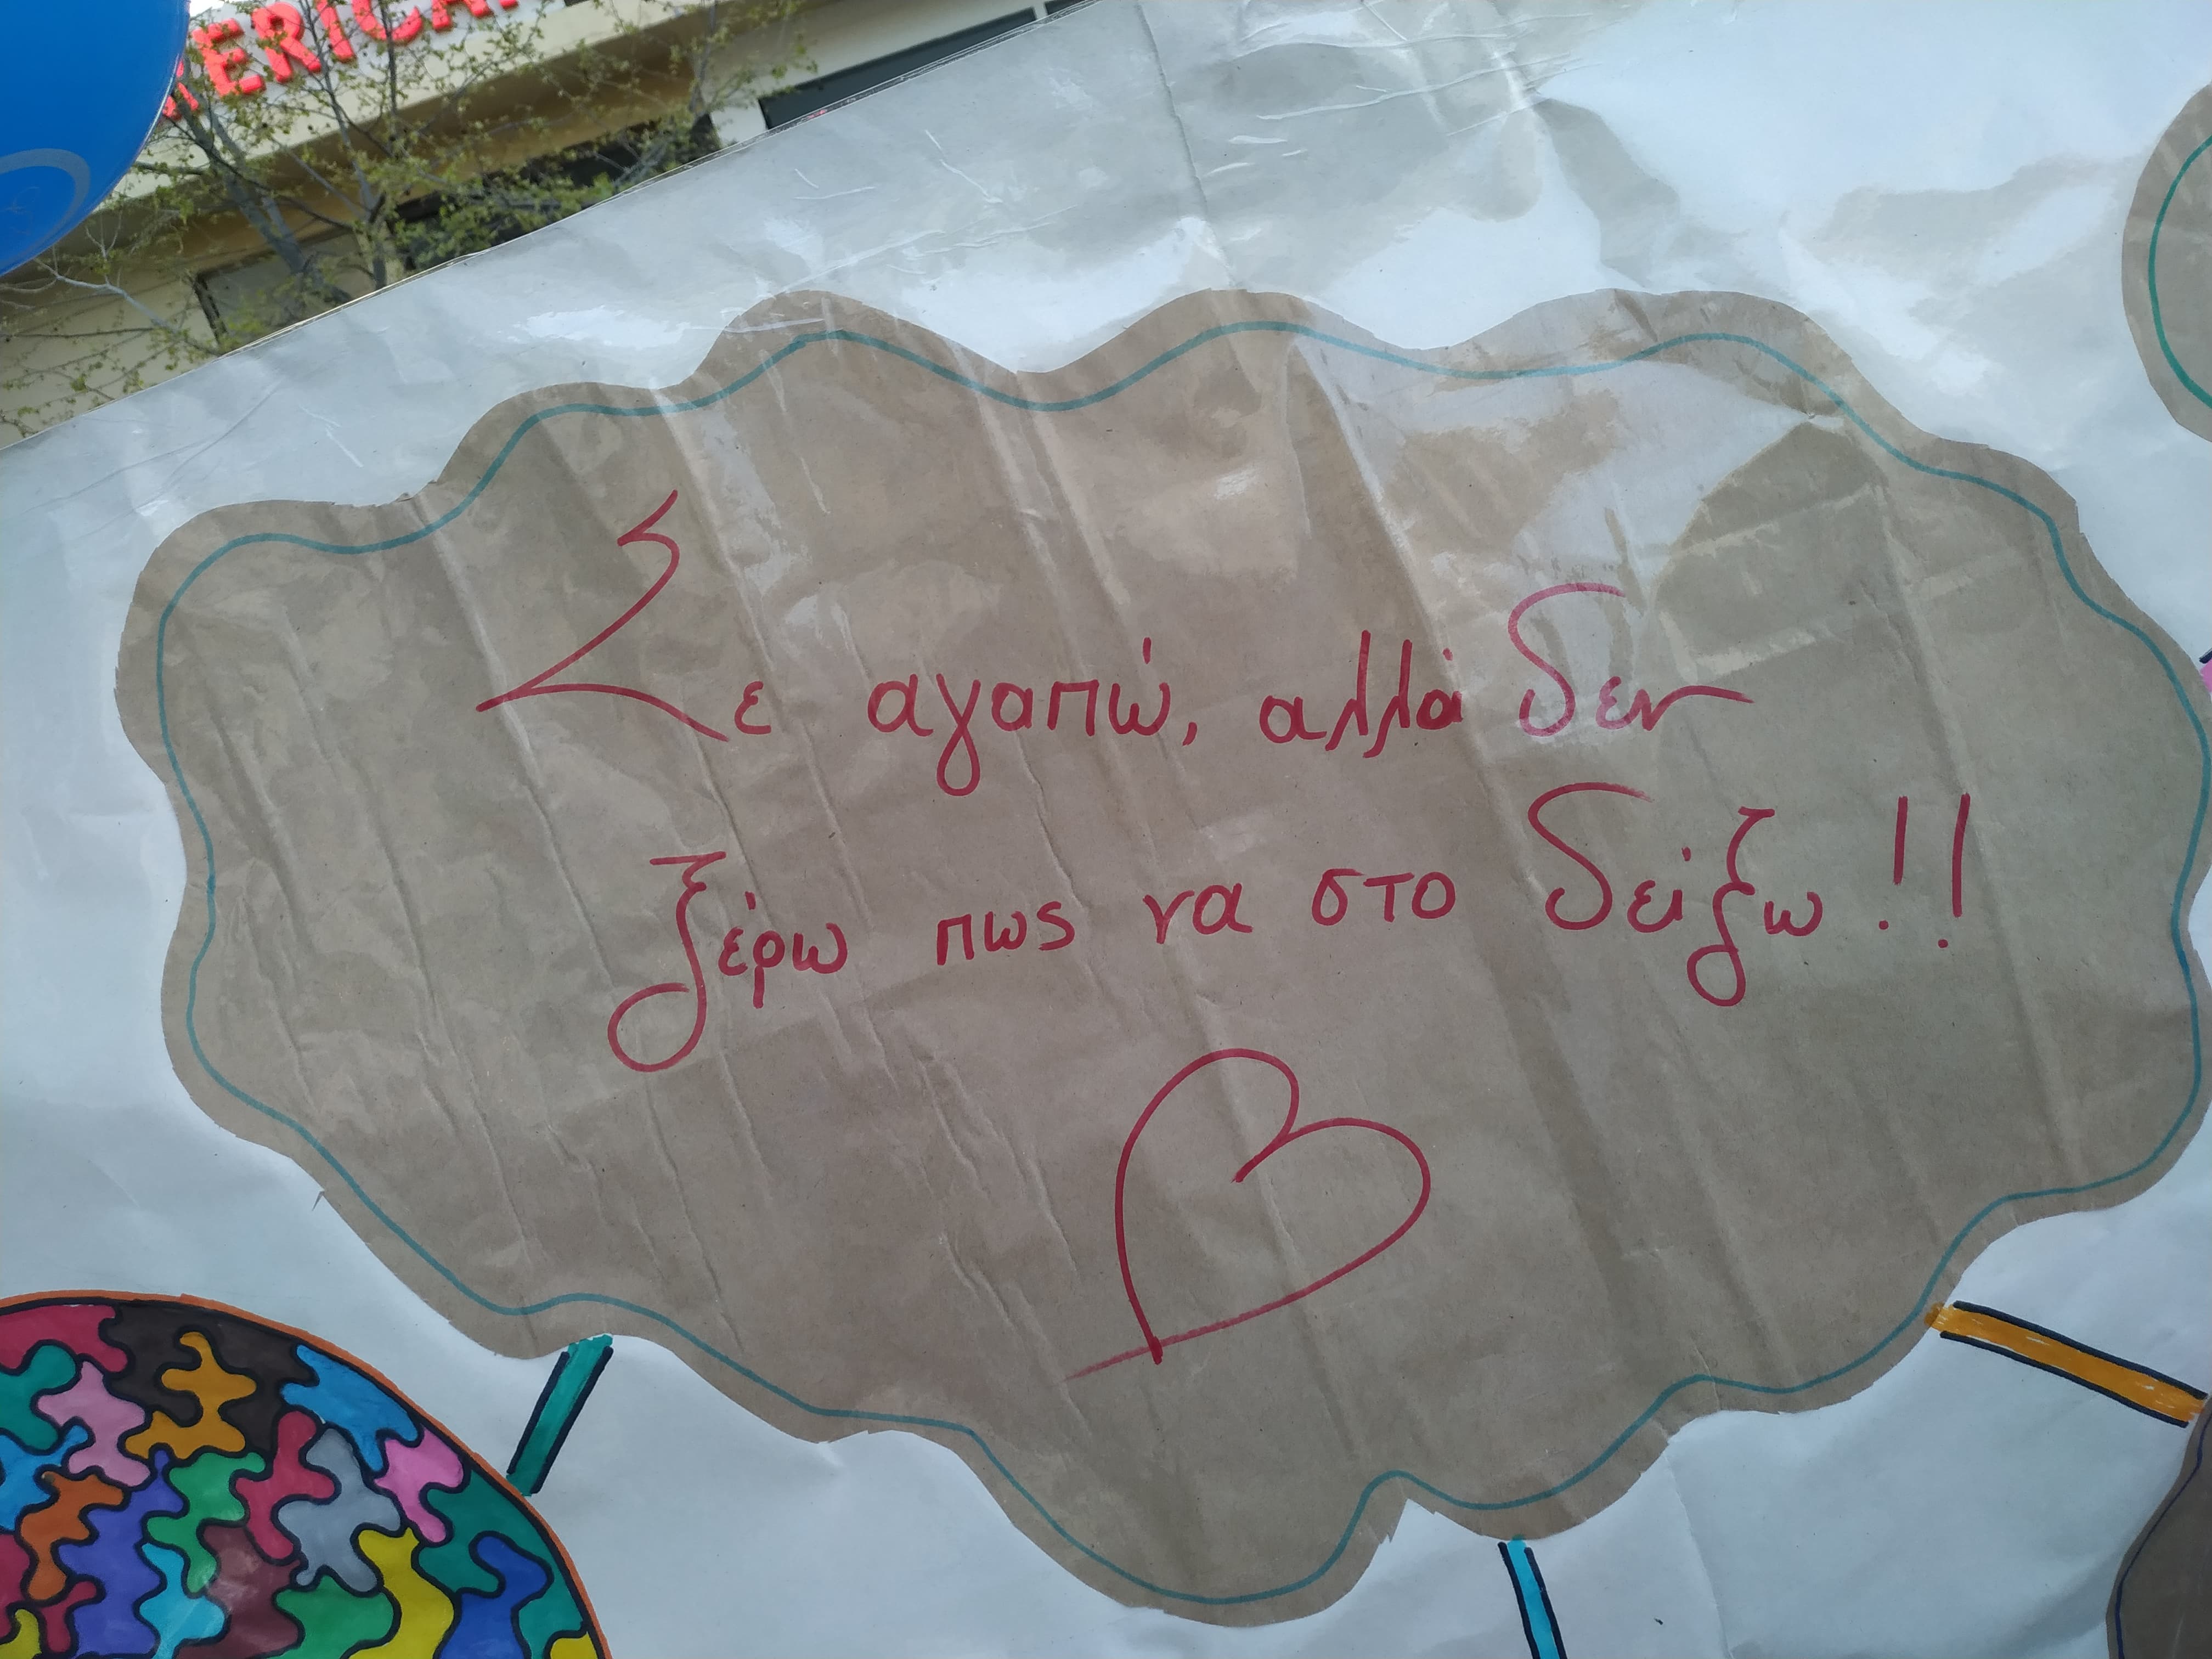 ERICA
Σε αγαπώ, αλλά δεν
ξέρω πως να στο δείξω!!